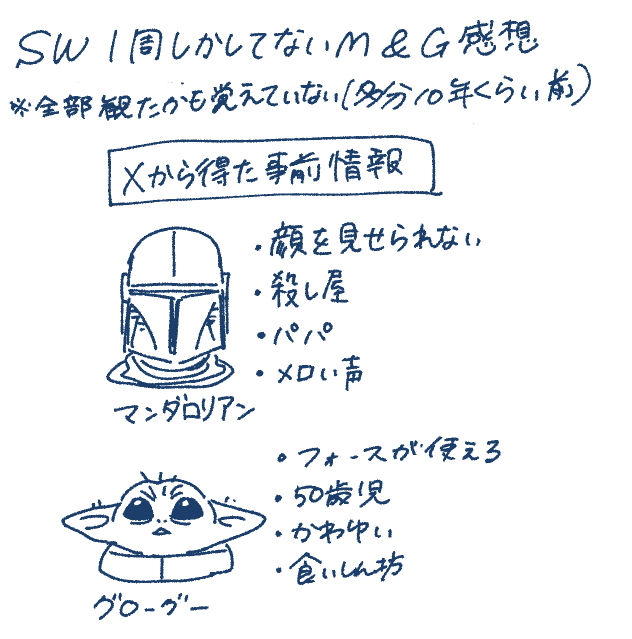 SW1周しかしてないM&G感想
※全部観たかも覚えていない(多分10年くらい前)
Xから得た事前情報
・顔を見せられない
・殺し屋
・パパ
・メロい声
マンダロリアン
・フォースが使える
・50歳児
・かわゆい
・食いしん坊
グローグー